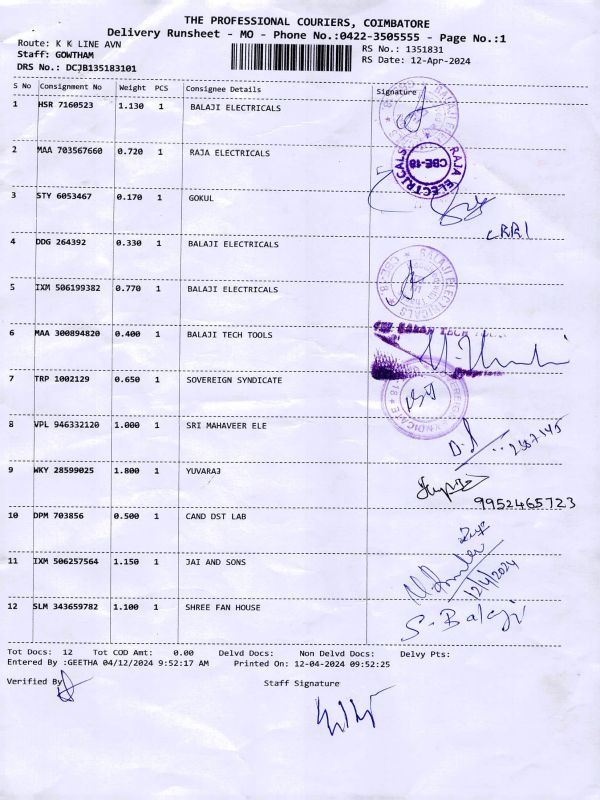 THE PROFESSIONAL COURIERS, COIMBATORE
Delivery Runsheet - MO - Phone No.:0422-3505555 - Page No.:1
Route: K K LINE AVN RS No.: 1351831
Staff: GOWTHAM RS Date: 12-Apr-2024
DRS No.: DCJB135183101
S No Consignment No Weight PCS Consignee Details Signature
1 HSR 7160523 1.130 1 BALAJI ELECTRICALS
2 MAA 703567660 0.720 1 RAJA ELECTRICALS
RAJA ELECTRICALS
CBE-18
3 STY 6053467 0.170 1 GOKUL
4 DDG 264392 0.330 1 BALAJI ELECTRICALS
BALAJI ELECTRICALS
5 IXM 506199382 0.770 1 BALAJI ELECTRICALS
6 MAA 300894820 0.400 1 BALAJI TECH TOOLS
7 TRP 1002129 0.650 1 SOVEREIGN SYNDICATE
8 VPL 946332120 1.000 1 SRI MAHAVEER ELE
9 WKY 28599025 1.800 1 YUVARAJ
9952465723
10 DPM 703856 0.500 1 CAND DST LAB
11 IXM 506257564 1.150 1 JAI AND SONS
12/4/2024
12 SLM 343659782 1.100 1 SHREE FAN HOUSE
S. Balaji
Tot Docs: 12 Tot COD Amt: 0.00 Delvd Docs: Non Delvd Docs: Delvy Pts:
Entered By :GEETHA 04/12/2024 9:52:17 AM Printed On: 12-04-2024 09:52:25
Verified By Staff Signature